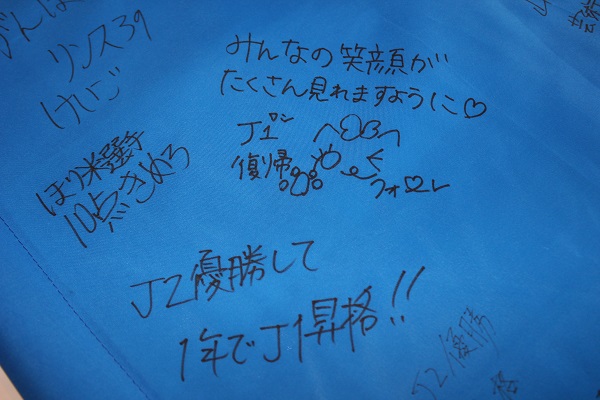 がんば
リンス39
けいご
みんなの笑顔が
たくさん見れますように♡
J1
復帰
フォロレ
ほり米選手
10点きめろ
J2優勝して
1年でJ昇格!!
J2優勝